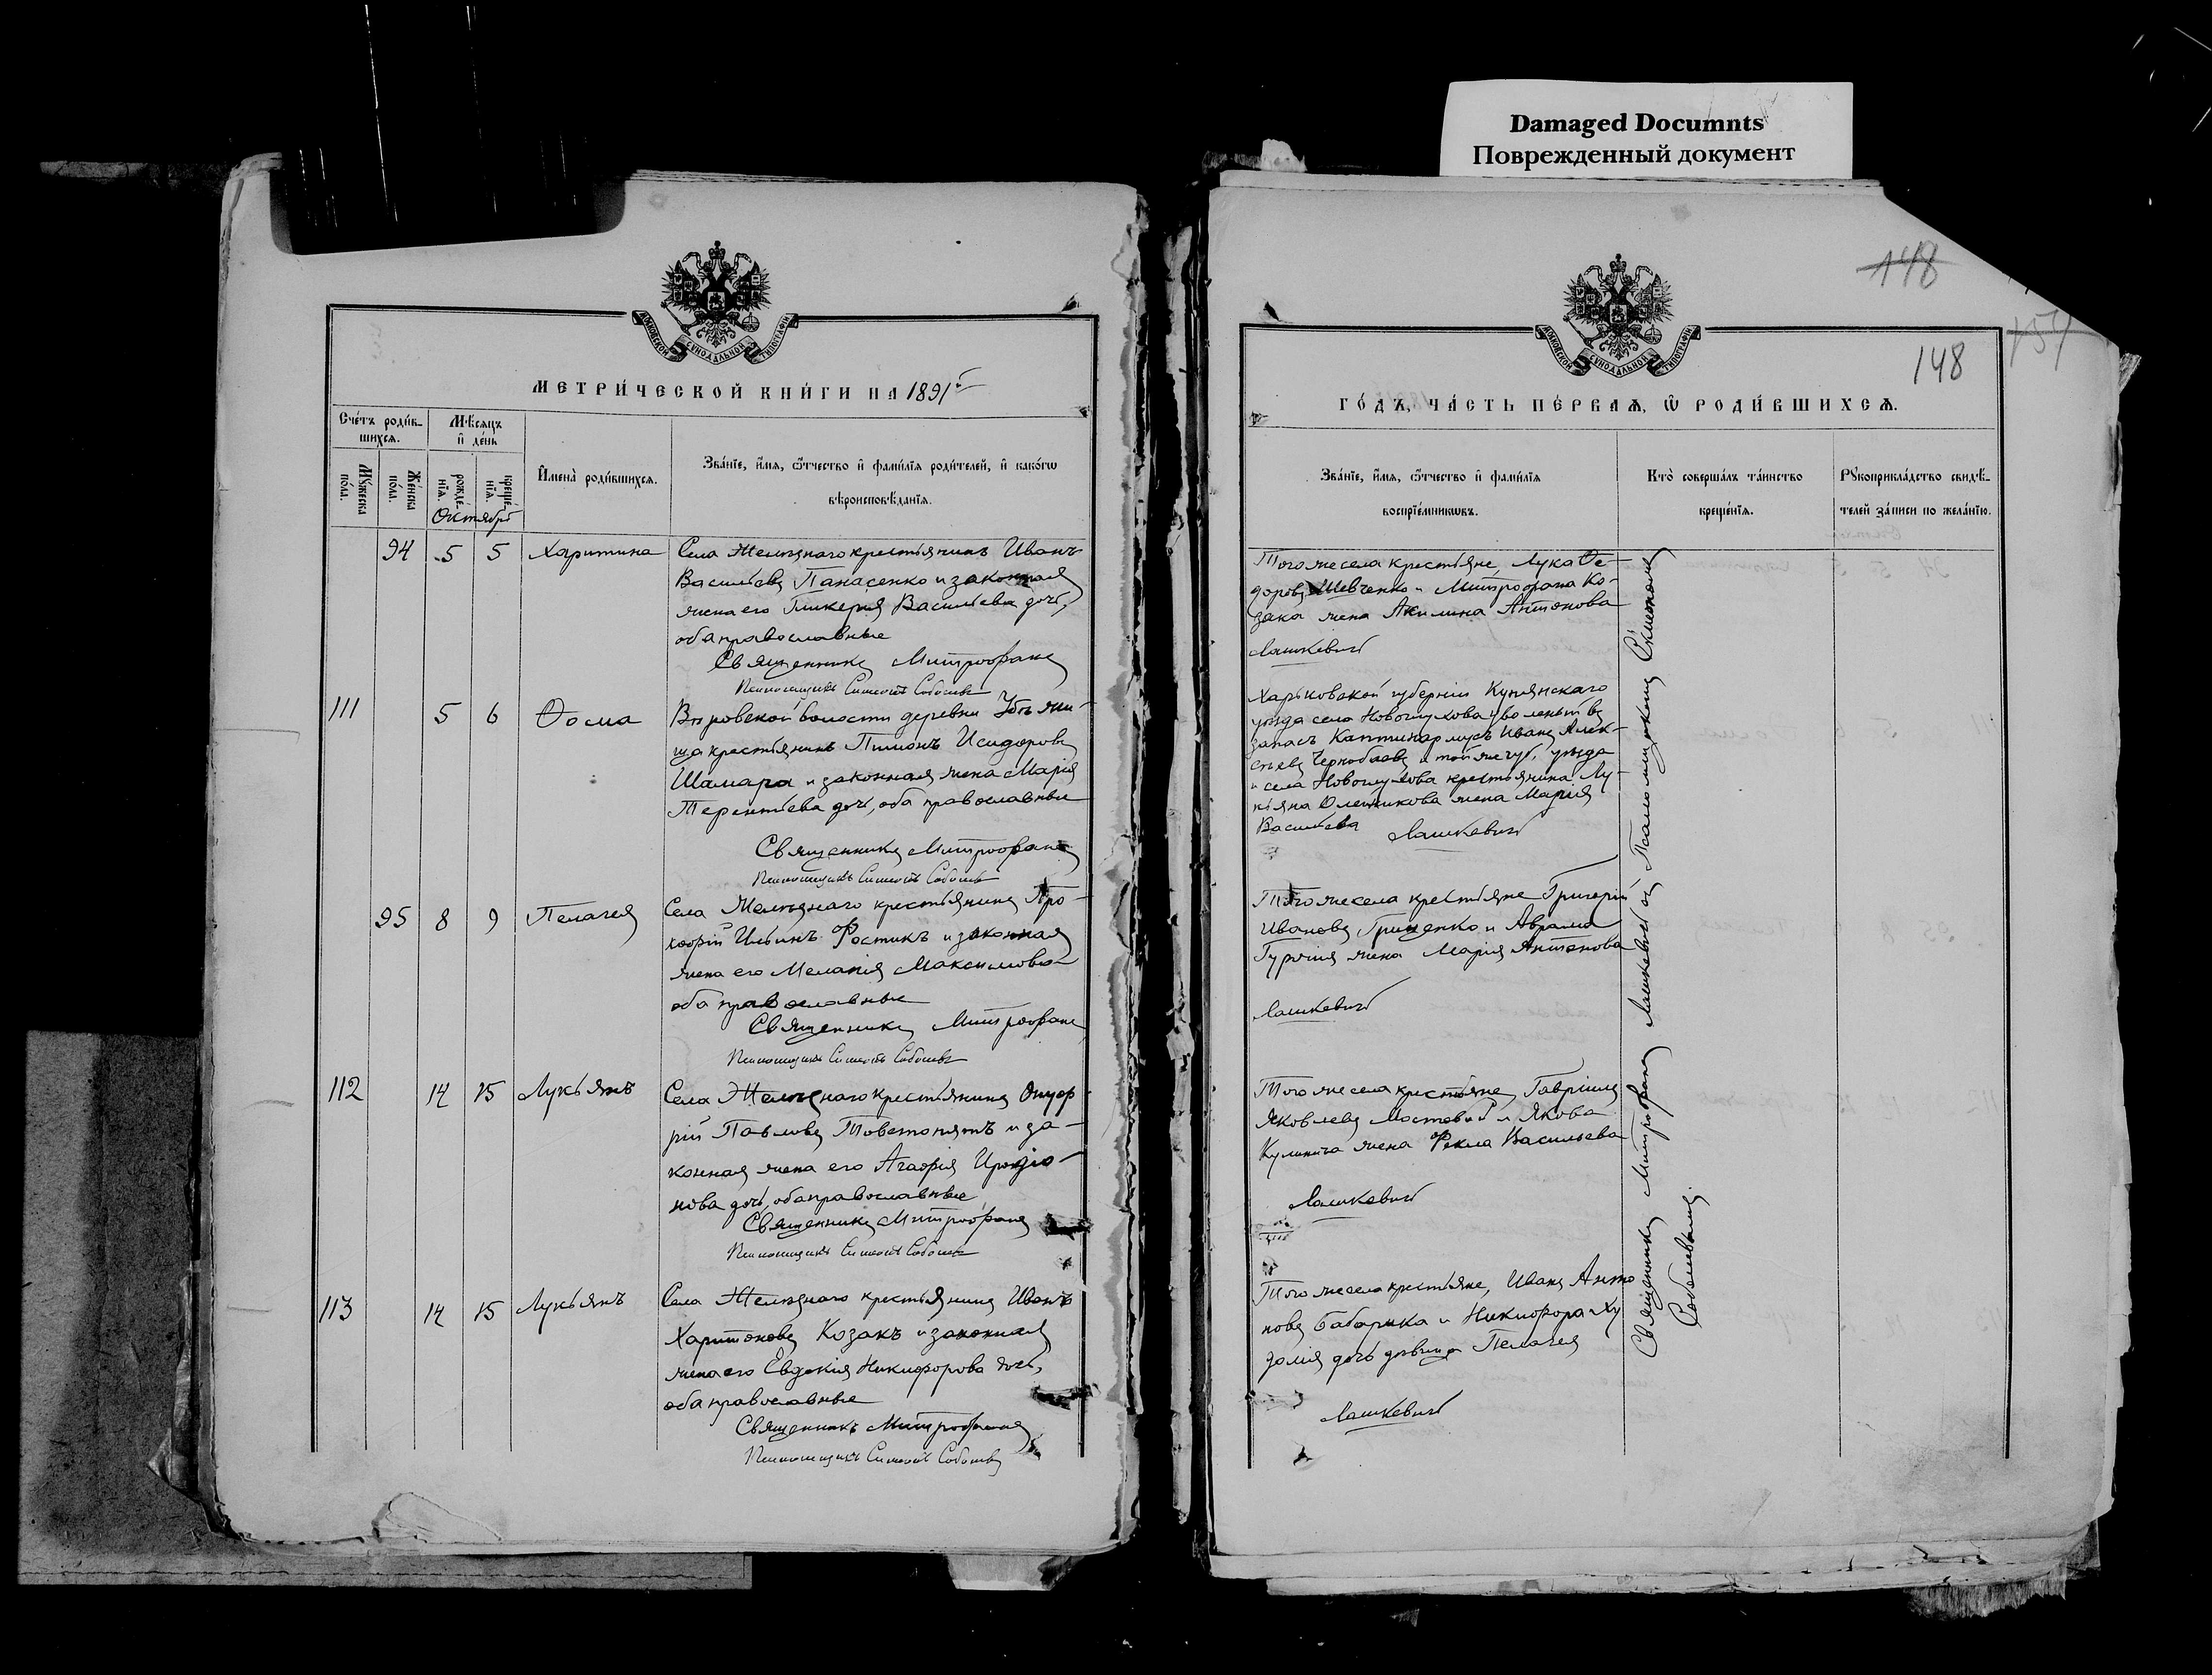 Damaged Documnts
Поврежденный документ
МОСКОВСКОЙ СѴНОДАЛЬНОЙ ТИПОГРАФІИ
МЕТРИ́ЧЕСКОЙ КНИ́ГИ НА 1891й
Сче́тъ роди́в-
шихсѧ.
Мѣ́сѧцъ
и҆ де́нь
Мꙋ́жеска
по́ла.
Же́нска
по́ла.
рожде́-
нїѧ.
креще́-
нїѧ.
Октябрь
И҆мена̀ роди́вшихсѧ.
Зва́нїе, и҆́мѧ, ѻ҆́тчество и҆ фами́лїѧ роди́телей, и҆ како́гѡ
вѣроисповѣ́данїѧ.
94 5 5 Харитина
Села Желѣзнаго крестьянинъ Иванъ
Васильевъ Панасенко и законная
жена его Гликерія Васильева дочь,
оба православные
Священникъ Митрофанъ
Псаломщикъ Симеонъ Соболевъ
111 5 6 Ѳома
Вѣровской волости деревни
крестьянинъ Пимонъ Исидоровъ
Шамара и законная жена Марія
Терентьева дочь, оба православные
Священникъ Митрофанъ
Псаломщикъ Симеонъ Соболевъ
95 8 9 Пелагея
Села Желѣзнаго крестьянинъ Про-
кофій Ильинъ Фостикъ и законная
жена его Меланія Максимова
оба православные
Священникъ Митрофанъ
Псаломщикъ Симеонъ Соболевъ
112 14 15 Лукьянъ
Села Желѣзнаго крестьянинъ Онуф-
рій Павловъ Товстопятъ и за-
конная жена его Агафія Иродіо-
нова дочь, оба православные
Священникъ Митрофанъ
Псаломщикъ Симеонъ Соболевъ
113 14 15 Лукьянъ
Села Желѣзнаго крестьянинъ Иванъ
Харитоновъ Козакъ и законная
жена его Евдокія Никифорова дочь,
оба православные
Священникъ Митрофанъ
Псаломщикъ Симеонъ Соболевъ
148
157
148
МОСКОВСКОЙ СѴНОДАЛЬНОЙ ТИПОГРАФІИ
ГО́ДЪ, ЧА́СТЬ ПЕ́РВАѦ, Ѡ҆ РОДИ́ВШИХСѦ.
Зва́нїе, и҆́мѧ, ѻ҆́тчество и҆ фами́лїѧ
воспрїе́мникѡвъ.
Кто̀ соверша́лъ та́инство
креще́нїѧ.
Рꙋкоприкла́дство свидѣ́-
телей за́писи по жела́нїю.
Того же села крестьяне, Лука Ѳе-
доровъ Шевченко и Митрофана Ко-
зака жена Акилина Антонова
Лашкевичъ
Харьковской губерніи Купянскаго
уѣзда села Новоглухова уволеный въ
запасъ Каптинармусъ Иванъ Алек-
сѣевъ Чернобаевъ и той же губ. уѣзда
и села Новоглухова крестьянина Лу-
кьяна Олейникова жена Марія
Васильева Лашкевичъ
Того же села крестьяне Григорій
Ивановъ Гриценко и Аврама
жена Марія Антонова
Лашкевичъ
Того же села крестьяне, Гавріилъ
Яковлевъ Мостовой и Якова
Кулинича жена Фекла Васильева
Лашкевичъ
Того же села крестьяне, Иванъ Анто
новъ Бабарика и Никифора Ху
дочь дѣвица Пелагея
Лашкевичъ
Священникъ Митрофанъ Лашкевичъ съ Псаломщикомъ Симеономъ
Соболевымъ.